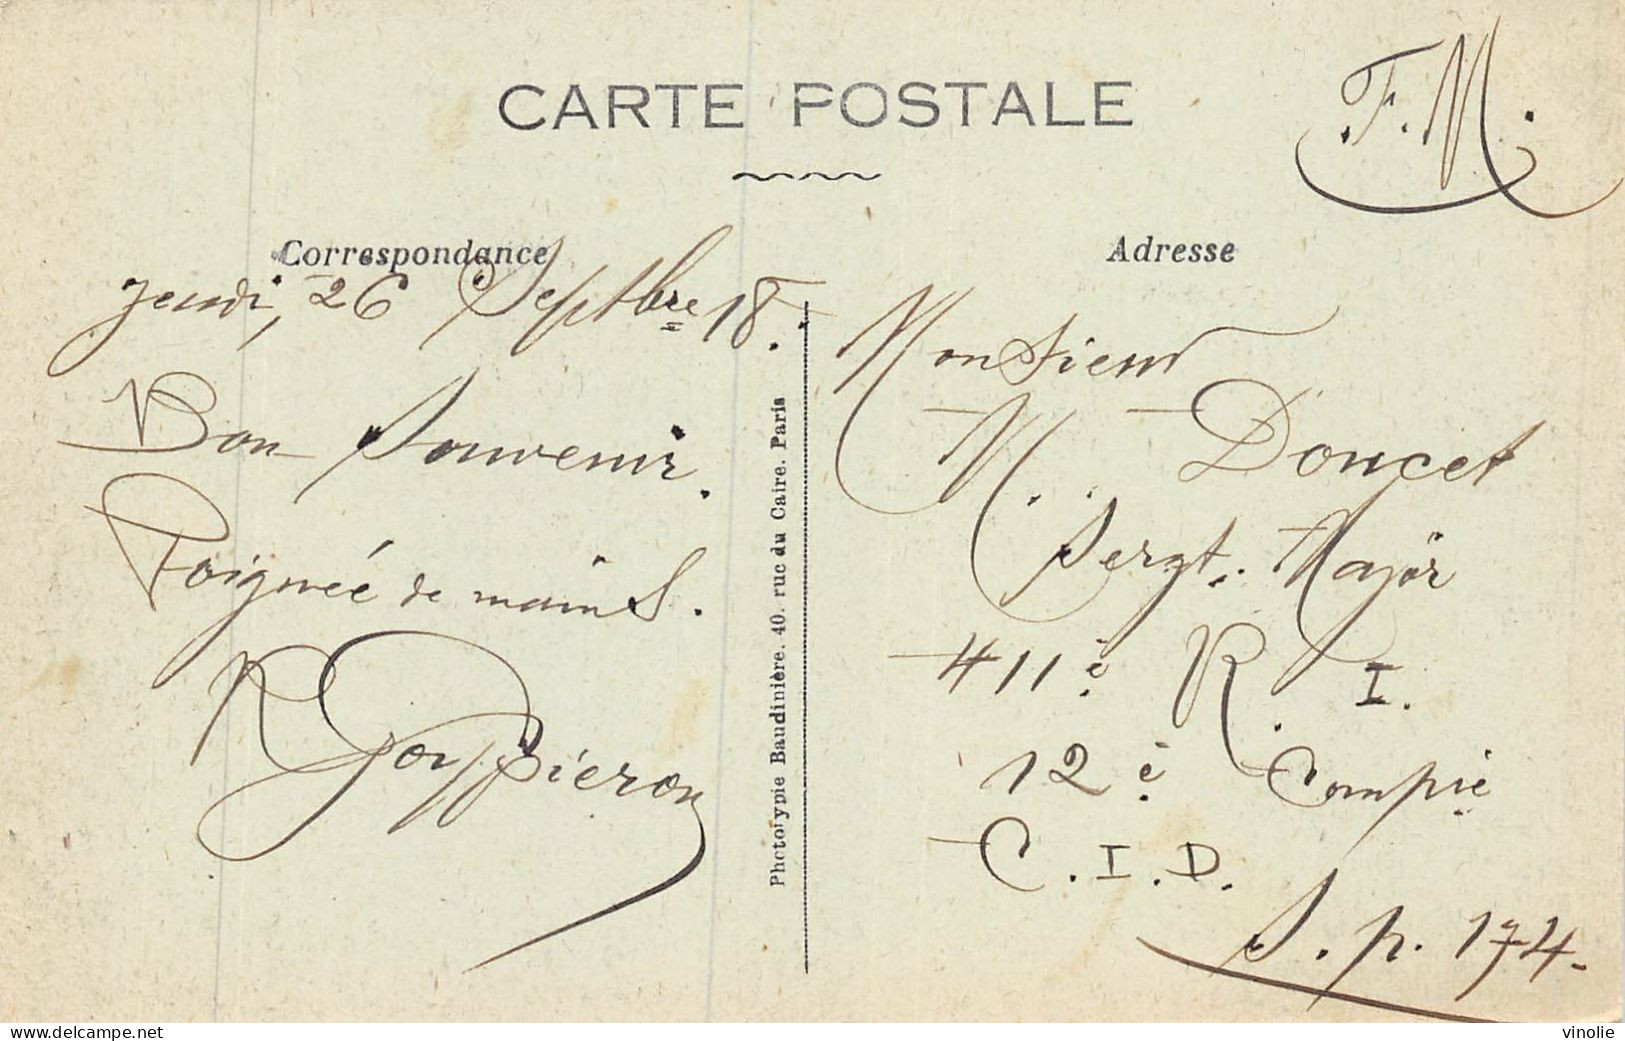 CARTE POSTALE
F. M.
Correspondance
Jeudi, 26 Septbre 18.
Bon Souvenir.
Poignée de mains.
Photoypie Baudinière. 40. rue du Caire. Paris
Adresse
Monsieur
M. Doucet
Sergt. Major
411è R. I.
12è Compie
C. I. D.
S. p. 174.
vinolie